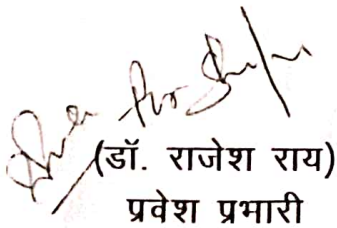 (डॉ. राजेश राय)
प्रवेश प्रभारी